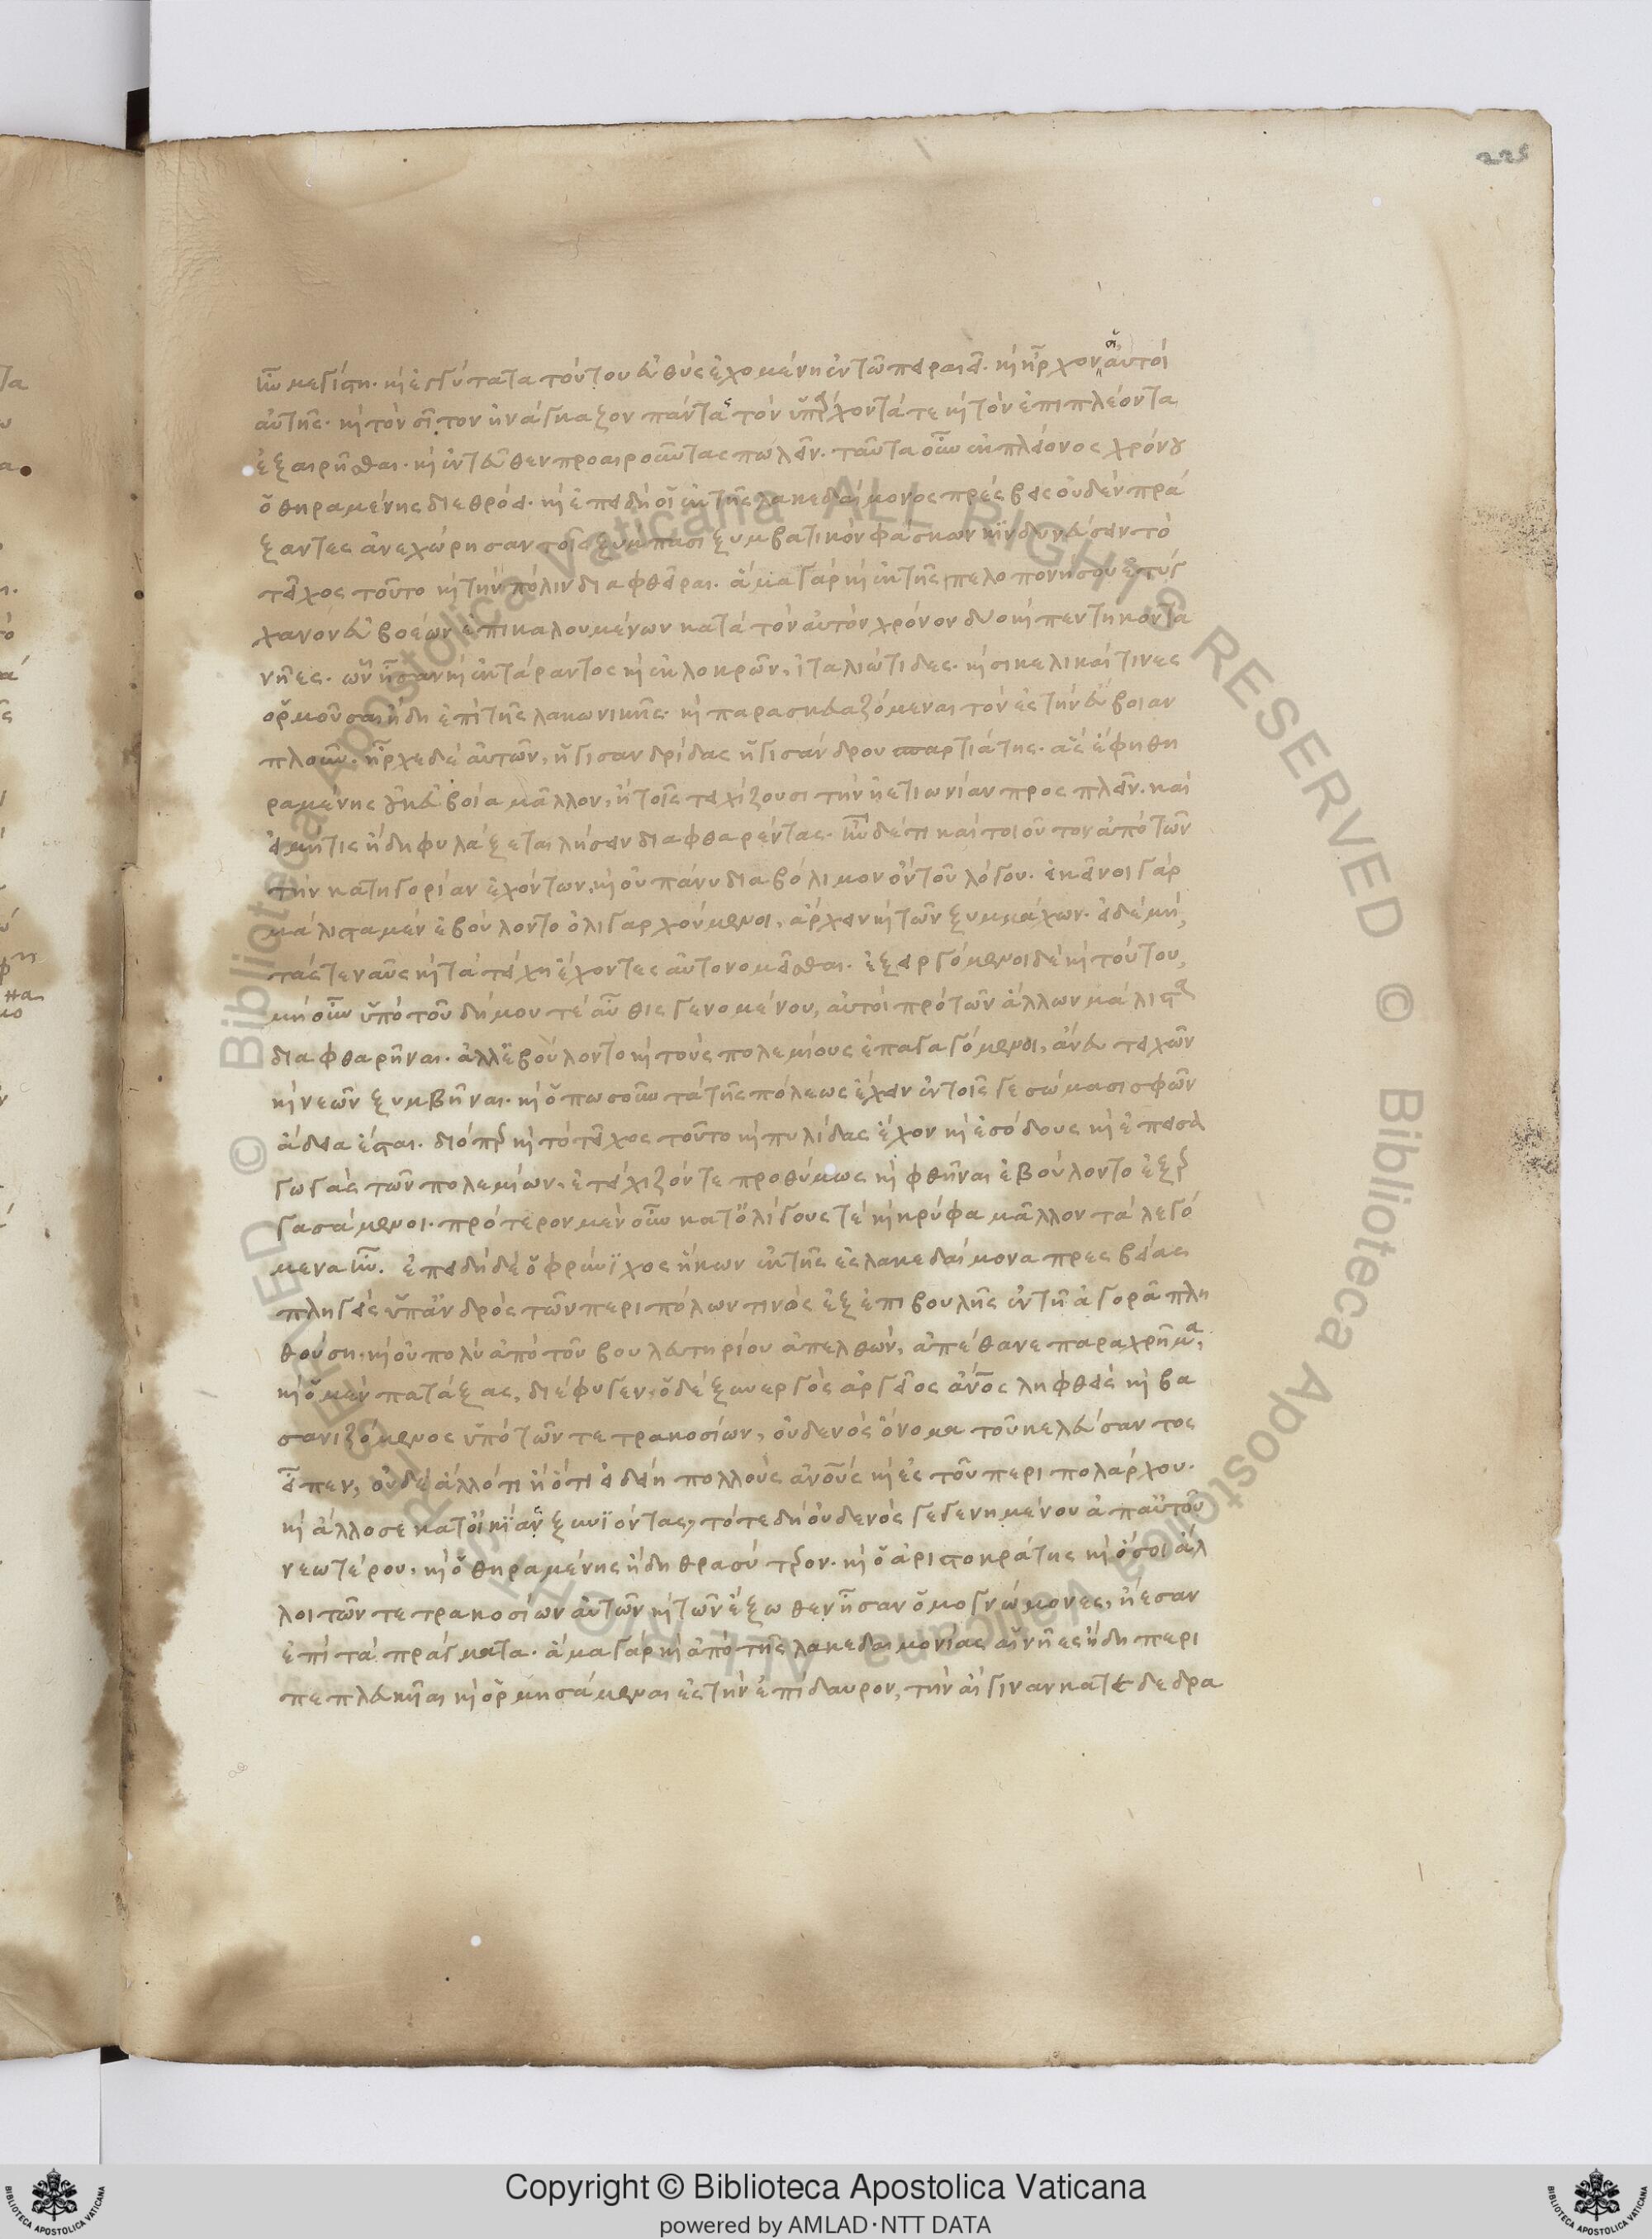 225
ἦν μεγίστη. καὶ ἐγγύτατα τούτου εὐθὺς ἐχομένη ἐν τῶ πειραιεῖ. καὶ ἦρχον αὐτοὶ
αὐτῆς. καὶ τὸν σῖτον ἠνάγκαζον πάντας τὸν ὑπάρχοντά τε καὶ τὸν ἐπιπλέοντα
ἐξαιρεῖσθαι. καὶ ἐντεῦθεν προαιροῦντας πωλεῖν. ταῦτα οὖν ἐκ πλείονος χρόνου
ὁ θηραμένης διεθρόει. καὶ ἐπειδὴ οἱ ἐκ τῆς λακεδαίμονος πρέσβεις οὐδὲν πρά
ξαντες ἀνεχώρησαν τοῖς ξύμπασι ξυμβατικὸν φάσκων κινδυνεύσειν τὸ
τεῖχος τοῦτο καὶ τὴν πόλιν διαφθεῖραι. ἅμα γὰρ καὶ ἐκ τῆς πελοπονήσου ἐτύγ
χανον εὐβοέων ἐπικαλουμένων κατὰ τὸν αὐτὸν χρόνον δύο καὶ πεντήκοντα
νῆες. ὧν ἦσαν καὶ ἐκ τάραντος καὶ ἐκ λοκρῶν, ἰταλιώτιδες. καὶ σικελικαί τινες
ὁρμοῦσαι ἤδη ἐπὶ τῆς λακωνικῆς. καὶ παρασκευαζόμεναι τὸν ἐς τὴν εὔβοιαν
πλοῦν. ἦρχε δὲ αὐτῶν, ἡγισανδρίδας ἡγισάνδρου σπαρτιάτης. ἃς ἔφη θη
ραμένης οὐκ εὐβοία μᾶλλον, ἢ τοῖς τειχίζουσι τὴν ἠετιωνίαν προσπλεῖν. καὶ
εἰ μή τις ἤδη φυλάξεται λήσειν διαφθαρέντας. ἦν δέ τι καὶ τοιοῦτον ἀπὸ τῶν
τὴν κατηγορίαν ἐχόντων, καὶ οὐ πάνυ διαβόλιμον ὂν τοῦ λόγου. ἐκεῖνοι γὰρ
μάλιστα μὲν ἐβούλοντο ὀλιγαρχούμενοι, ἄρχειν καὶ τῶν ξυμμάχων. εἰ δὲ μή,
τάς τε ναῦς καὶ τὰ τείχη ἔχοντες αὐτονομεῖσθαι. ἐξειργόμενοι δὲ καὶ τούτου,
μὴ οὖν ὑπὸ τοῦ δήμου τὲ αὖθις γενομένου, αὐτοὶ πρὸ τῶν ἄλλων μάλιστα
διαφθαρῆναι. ἀλλ' ἐβούλοντο καὶ τοὺς πολεμίους ἐπαγαγόμενοι, ἄνευ τειχῶν
καὶ νεῶν ξυμβῆναι. καὶ ὁπωσοῦν τὰ τῆς πόλεως ἔχειν ἐν τοῖς γε σώμασι σφῶν
ἄδεια ἔσται. διόπερ καὶ τὸ τεῖχος τοῦτο καὶ πυλίδας ἔχον καὶ ἐσόδους καὶ ἐπεσα
γωγὰς τῶν πολεμίων, ἐτείχιζόν τε προθύμως καὶ φθῆναι ἐβούλοντο ἐξερ
γασάμενοι. πρότερον μὲν οὖν κατ' ὀλίγους τὲ καὶ κρύφα μᾶλλον τὰ λεγό
μενα ἦν. ἐπειδὴ δὲ ὁ φρύνιχος ἥκων ἐκ τῆς ἐς λακεδαίμονα πρεσβείας
πληγεὶς ὑπ' ἀνδρὸς τῶν περιπόλων τινὸς ἐξ ἐπιβουλῆς ἐν τῆ ἀγορᾶ πλη
θούση, καὶ οὐ πολὺ ἀπὸ τοῦ βουλευτηρίου ἀπελθών, ἀπέθανε παραχρῆμα,
καὶ ὁ μὲν πατάξας, διέφυγεν, ὁ δὲ ξυνεργὸς ἀργεῖος ἄνος ληφθεὶς καὶ βα
σανιζόμενος ὑπὸ τῶν τετρακοσίων, οὐδενὸς ὄνομα τοῦ κελεύσαντος
εἶπεν, οὐδὲ ἄλλό τι ἢ ὅτι εἰδείη πολλοὺς ἀνους καὶ ἐς τοῦ περιπολάρχου.
καὶ ἄλλοσε κατ' οἰκίας ξυνιόντας, τότε δὴ οὐδενὸς γεγενημένου ἀπ' αὐτοῦ
νεωτέρου, καὶ ὁ θηραμένης ἤδη θρασύτερον. καὶ ὁ ἀριστοκράτης καὶ ὅσοι ἄλ
λοι τῶν τετρακοσίων αὐτῶν καὶ τῶν ἔξωθεν ἦσαν ὁμογνώμονες, ἤεσαν
ἐπὶ τὰ πράγματα. ἅμα γὰρ καὶ ἀπὸ τῆς λακεδαιμονίας αἱ νῆες ἤδη περι
πεπλευκυῖαι καὶ ὁρμησάμεναι ἐς τὴν ἐπίδαυρον, τὴν αἴγιναν κατεδεδρα
Copyright © Biblioteca Apostolica Vaticana
powered by AMLAD·NTT DATA